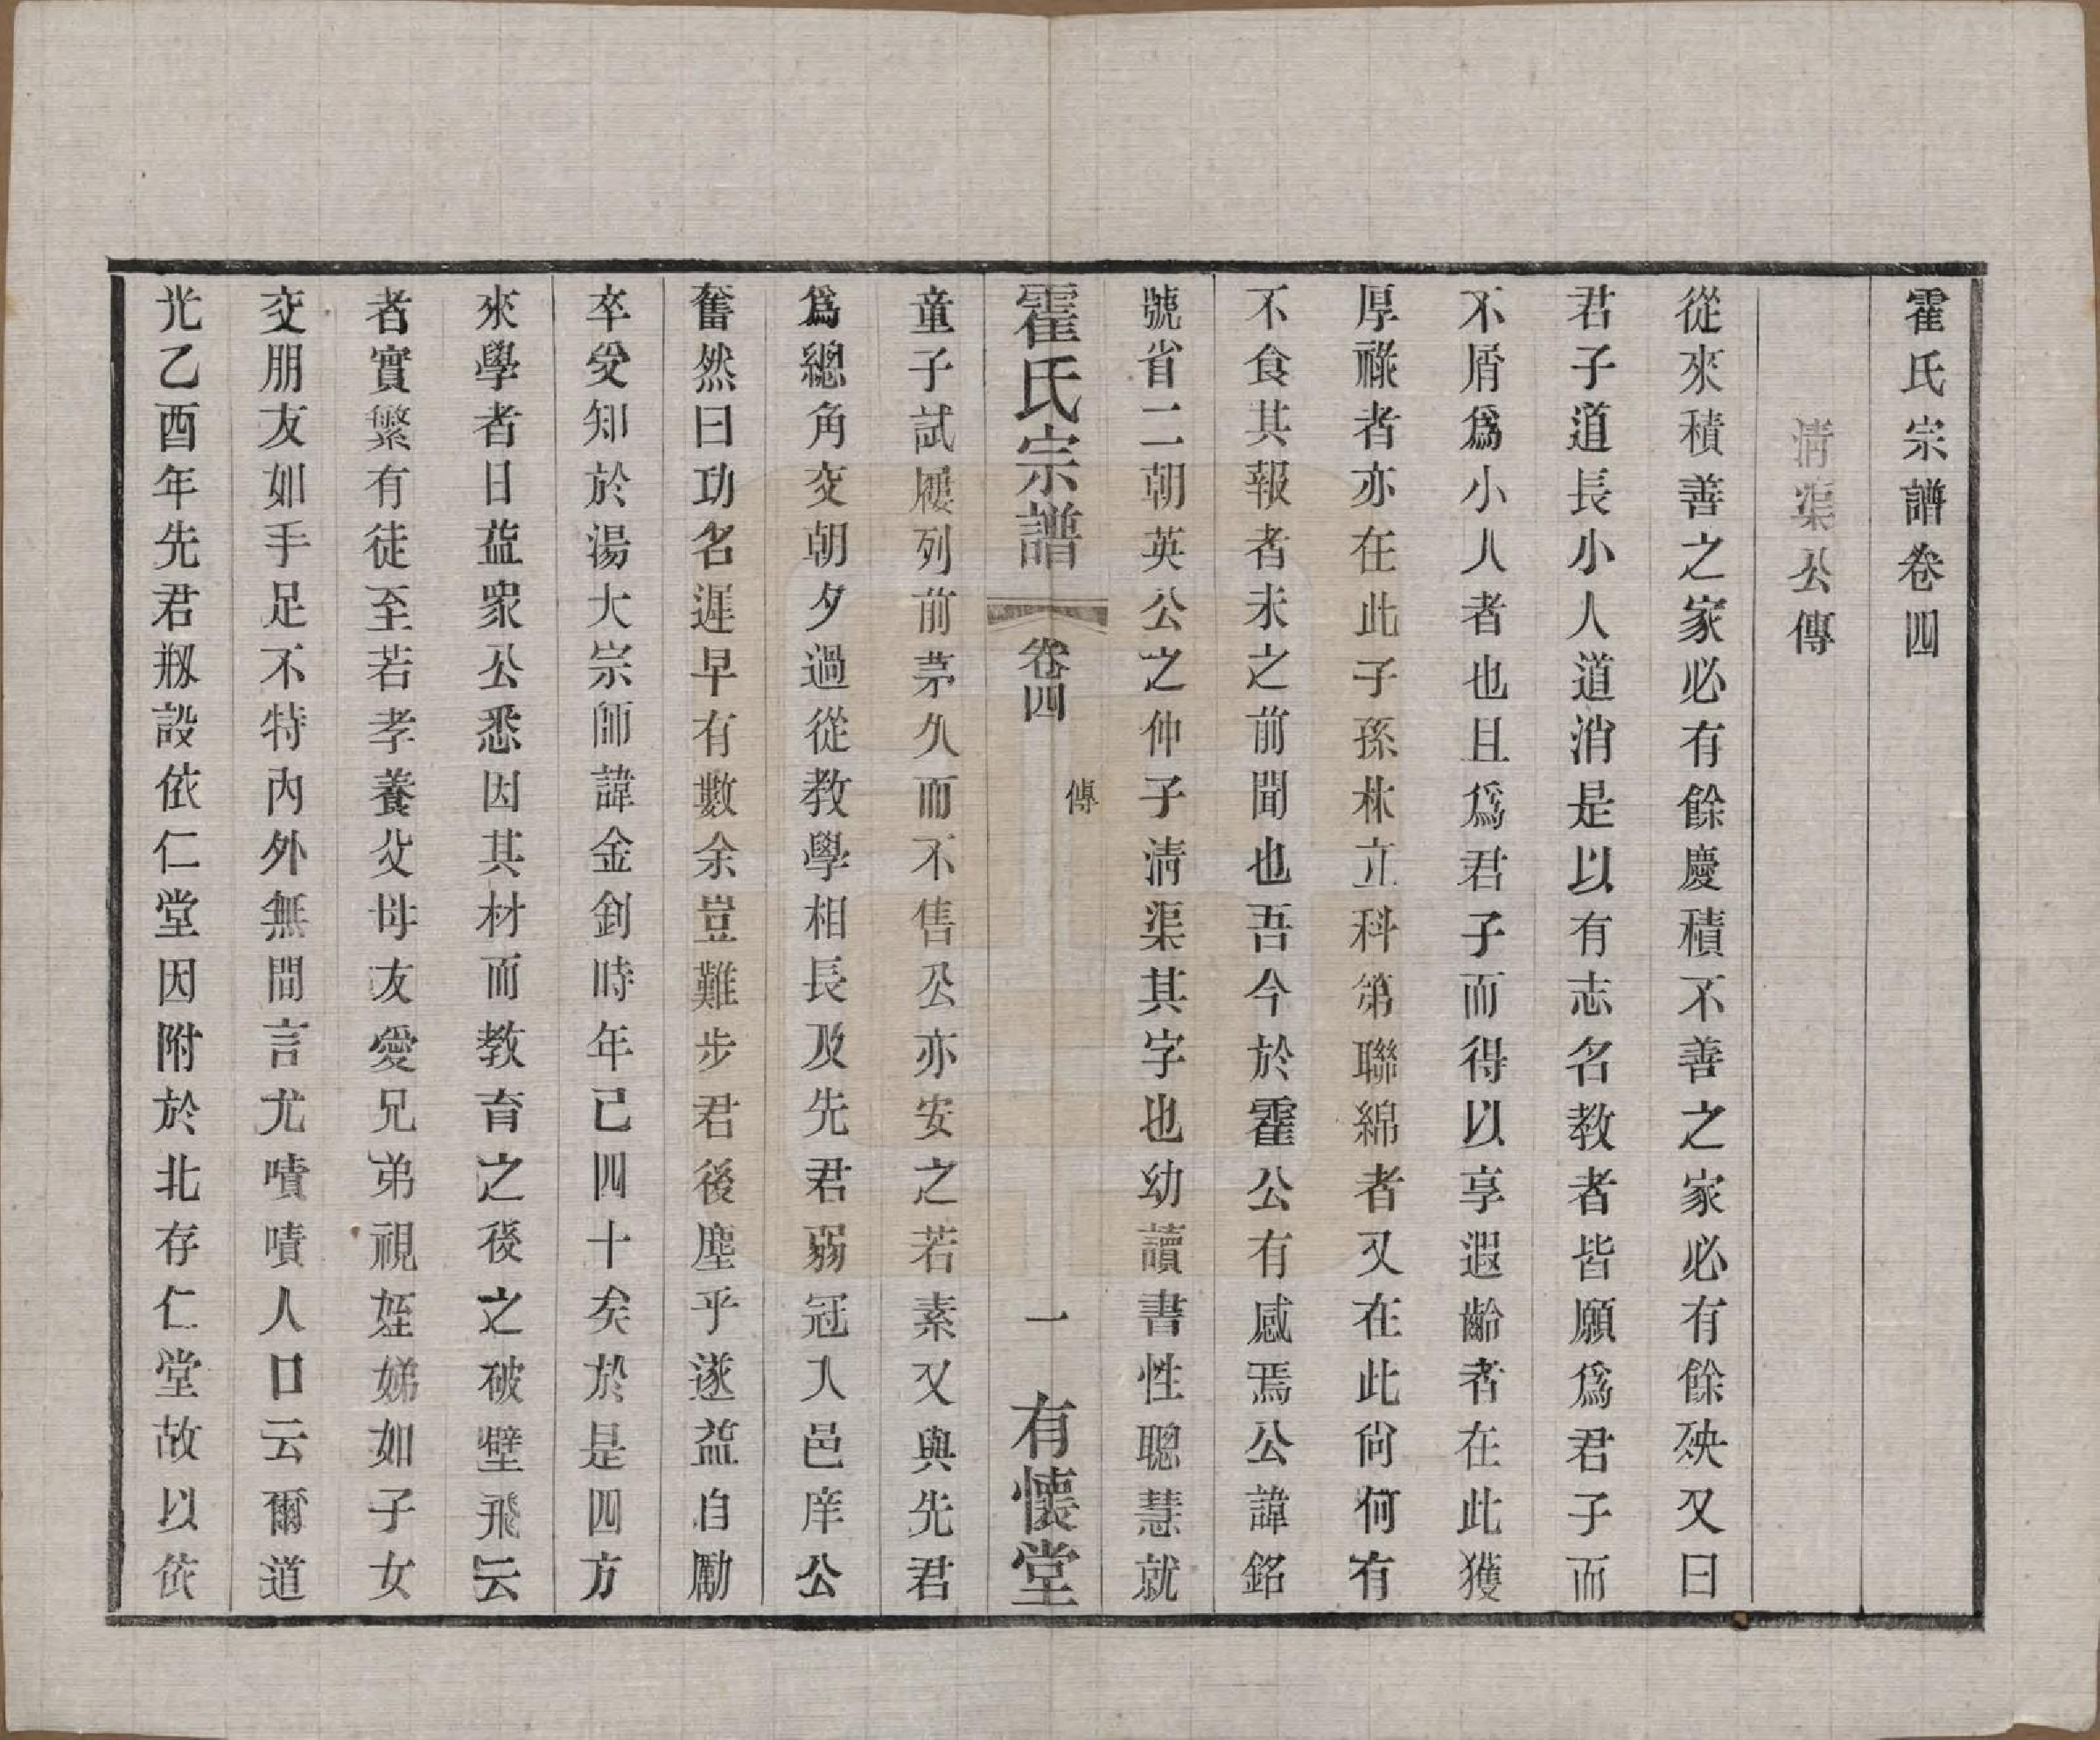 霍氏宗譜卷四
清渠公傳
從來積善之家必有餘慶積不善之家必有餘殃又曰
君子道長小人道消是以有志名教者皆願爲君子而
不屑爲小人者也且爲君子而得以享遐齡者在此獲
厚祿者亦在此子孫林立科第聯綿者又在此尙何有
不食其報者未之前聞也吾今於霍公有感焉公諱銘
號省二朝英公之仲子淸渠其字也幼讀書性聰慧就
霍氏宗譜
卷四
傳
一
有懷堂
童子試屢列前茅久而不售公亦安之若素又與先君
爲總角交朝夕過從教學相長及先君弱冠入邑庠公
奮然曰功名遲早有數余豈難步君後塵乎遂益自勵
卒受知於湯大宗師諱金釗時年已四十矣於是四方
來學者日益眾公悉因其材而教育之後之破壁飛云
者實繁有徒至若孝養父母友愛兄弟視姪娣如子女
交朋友如手足不特內外無間言尤嘖嘖人口云爾道
光乙酉年先君刱設依仁堂因附於北存仁堂故以依